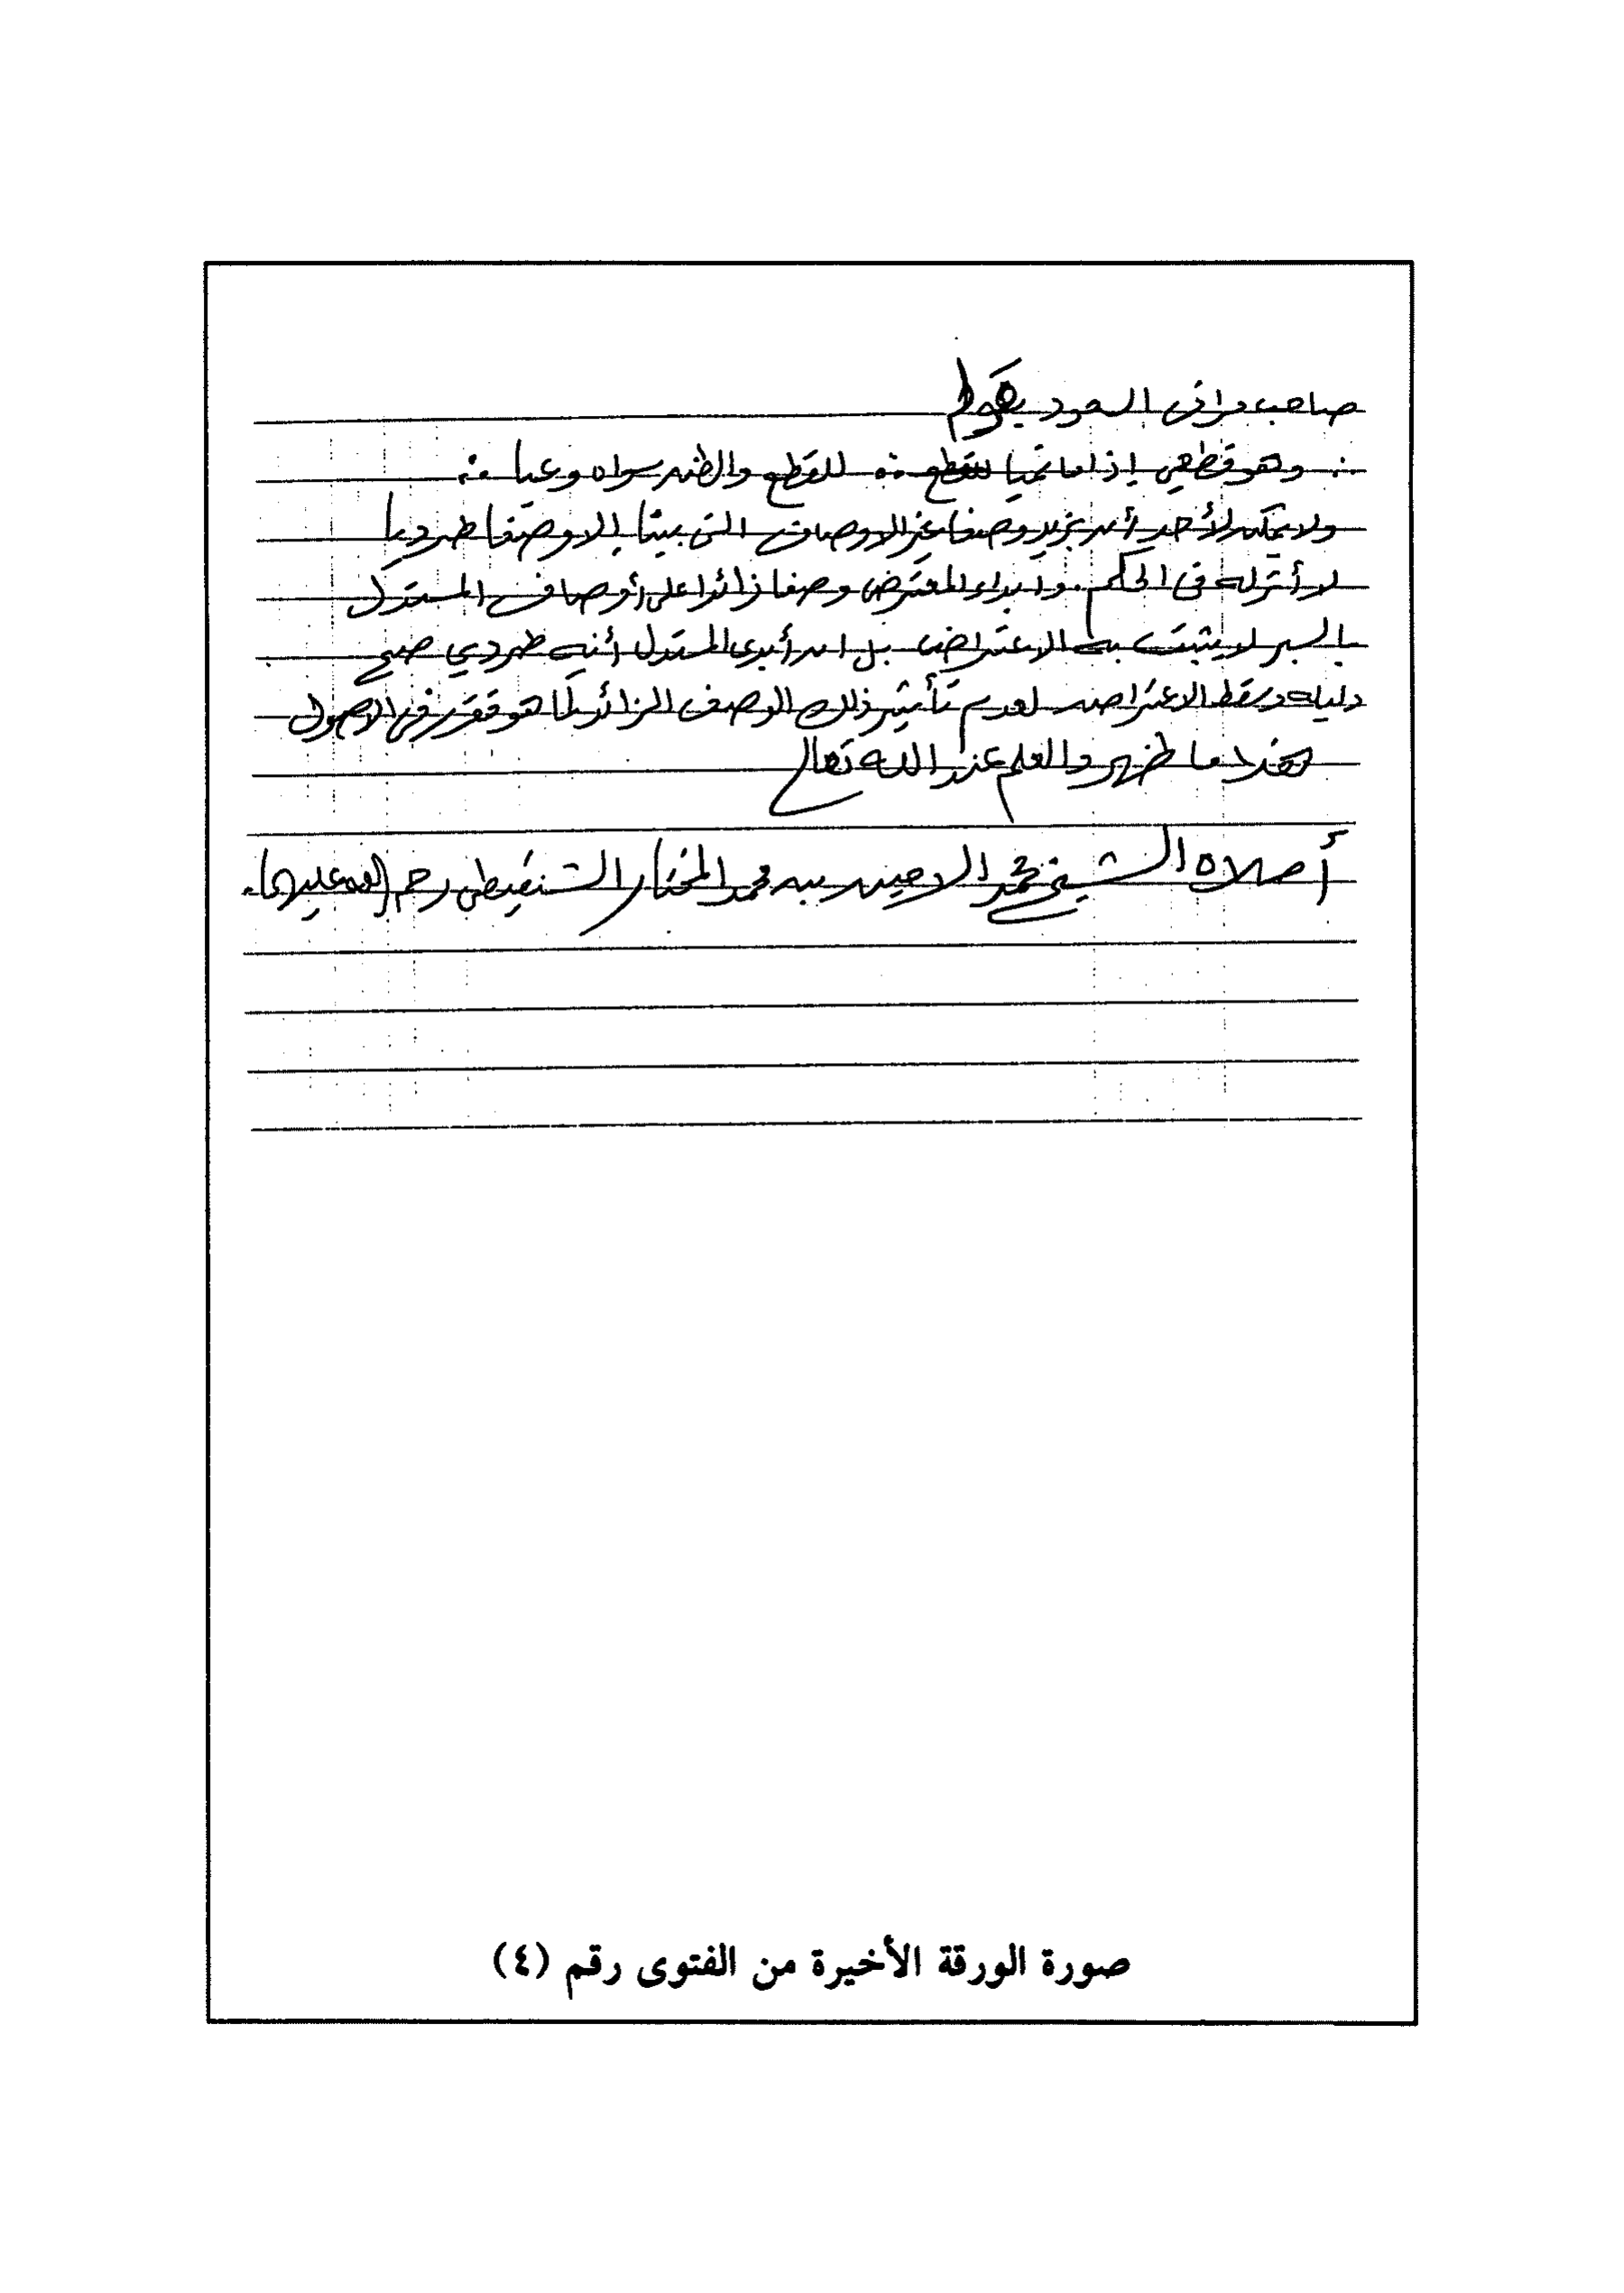 صاحب مراقى السعود يقول
∴ وهو قطعي إذا ما نميا ∵ للقطع والظن سواه وعيا ∴
ولا يمكن لأحد أن يزيد وصفا غير الاوصاف التى بيننا إلا وصفا طرديا
لا أثر له فى الحكم. وابداء المعترض وصفا زائدا على أوصاف المستدل
بالسبر لا يثبت به الاعتراض بل ان أبدى المستدل أنه طردي صح
دليله وسقط الاعتراض لعدم تأثير ذلك الوصف الزائد كما هو مقرر فى الاصول
هذا ما ظهر والعلم عند الله تعالى
أملاه الشيخ محمد الامين بن محمد المختار الشنقيطى رحم الله عليهما.
صورة الورقة الأخيرة من الفتوى رقم (٤)